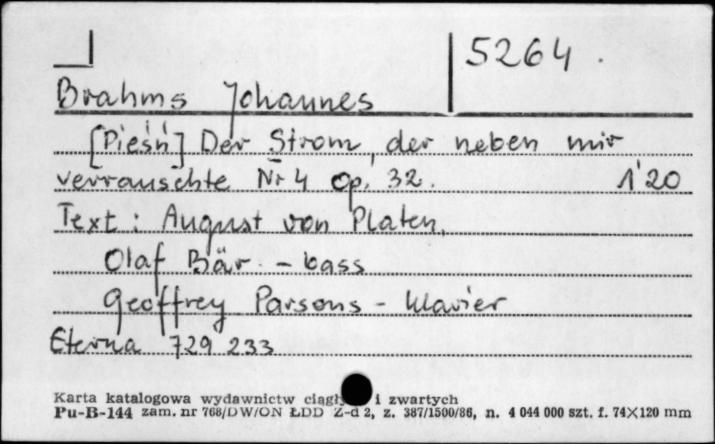 5264
Brahms Johannes
[Pieśń] Der Strom, der neben mir
verrauschte Nr 4 op. 32. 1'20
Text: August von Platen.
Olaf Bär - bass
Geoffrey Parsons - Klavier
Eterna 729 233
Karta katalogowa wydawnictw i zwartych
Pu-B-144 zam. nr 768/DW/ON ŁDD Z-d 2, z. 387/1500/86, n. 4 044 000 szt. f. 74X120 mm